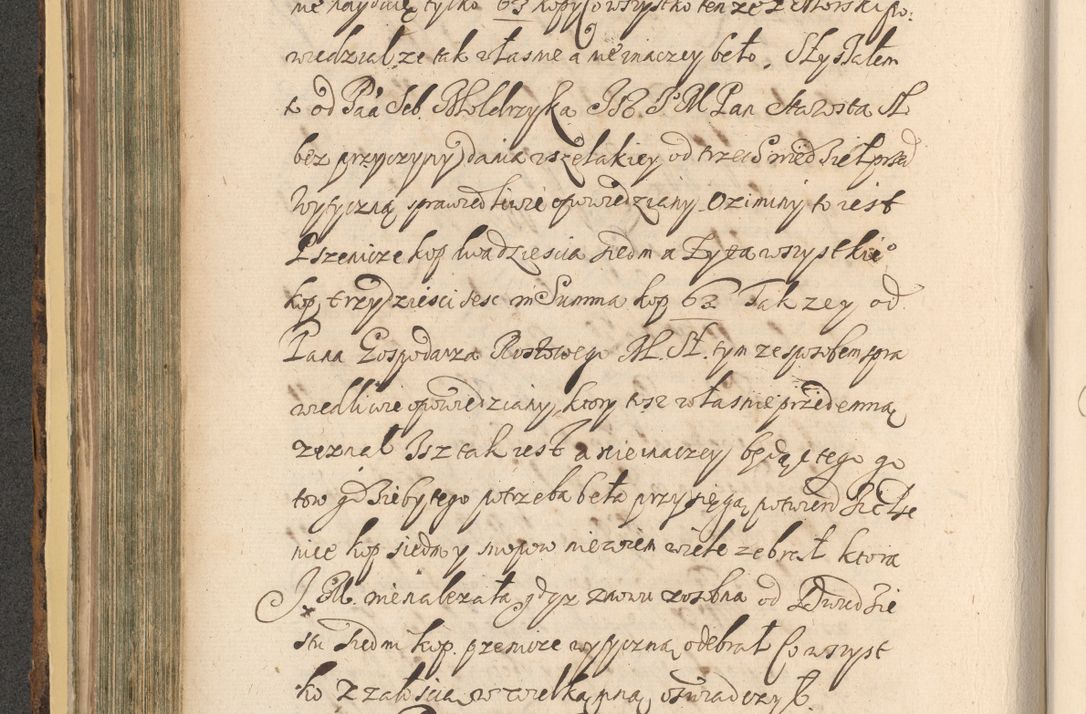 nie naydzie tylko 63 kopy co wszystko tenze Zatorski po:
wiedzial, ze tak własnie a nie inaczey beło. Słyszałem
t. od Paa Seb. Isz J. M Pan Starosta
bez przyczyny dania wszelakiey od trzech niedziel przed
Wytyczną sprawiedliwie opowiedziany Oziminy to iest
Pszenice kop dwadziescia siedm a Zyta wszystkie°
kop trzydziesci sesc in Summa kop 63. Takzey od
Pana Gospodarza M. St. tym ze sposobem spra
wiedliwie opowiedziany, ktory tesz własnie przedemną
zeznał Isz tak iest a nie inaczey będąc tego go
tow gdzieby tego potrzeba beła przysięgą potwierdzic Psze
nice kop siedm y snopow nie wiem wiele zebrał ktora
J M. nienalezała gdyz znowu osobna od Dwudzie
stu siedm kop. pzenice wytyczną odebrał Co wszyst
ko z załoscią wielką oswiadczył.